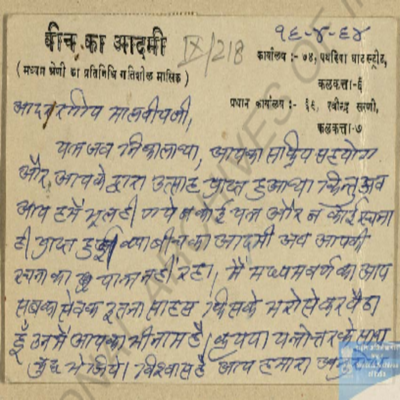 १६-४-६४
बीच का आदमी
IX/218
(मध्यम श्रेणी का प्रतिनिधि गतिशील मासिक)
कार्यालय :- ७४, पथरिया घाट स्ट्रीट,
कलकत्ता-६
प्रधान कार्यालय :- ६६, रवीन्द्र सरणी,
कलकत्ता-७
आदरणीय मालवीयजी,
पत्र जब निकाला था, आपका सक्रिय सहयोग
और आपके द्वारा उत्साह प्राप्त हुआ था किन्तु अब
आप हमें भूल ही गये न कोई पत्र और न कोई रचना
ही प्राप्त हुई। क्या बीच का आदमी अब आपकी
रचना का पात्र नहीं रहा। मैं मध्यमवर्ग का आप
सबका सेवक इतना साहस किसके भरोसे कर बैठा
हूँ उनमें आपका भी नाम है। कृपया पत्रोत्तर के साथ
कुछ भेजिये। विश्वास है आप हमारा